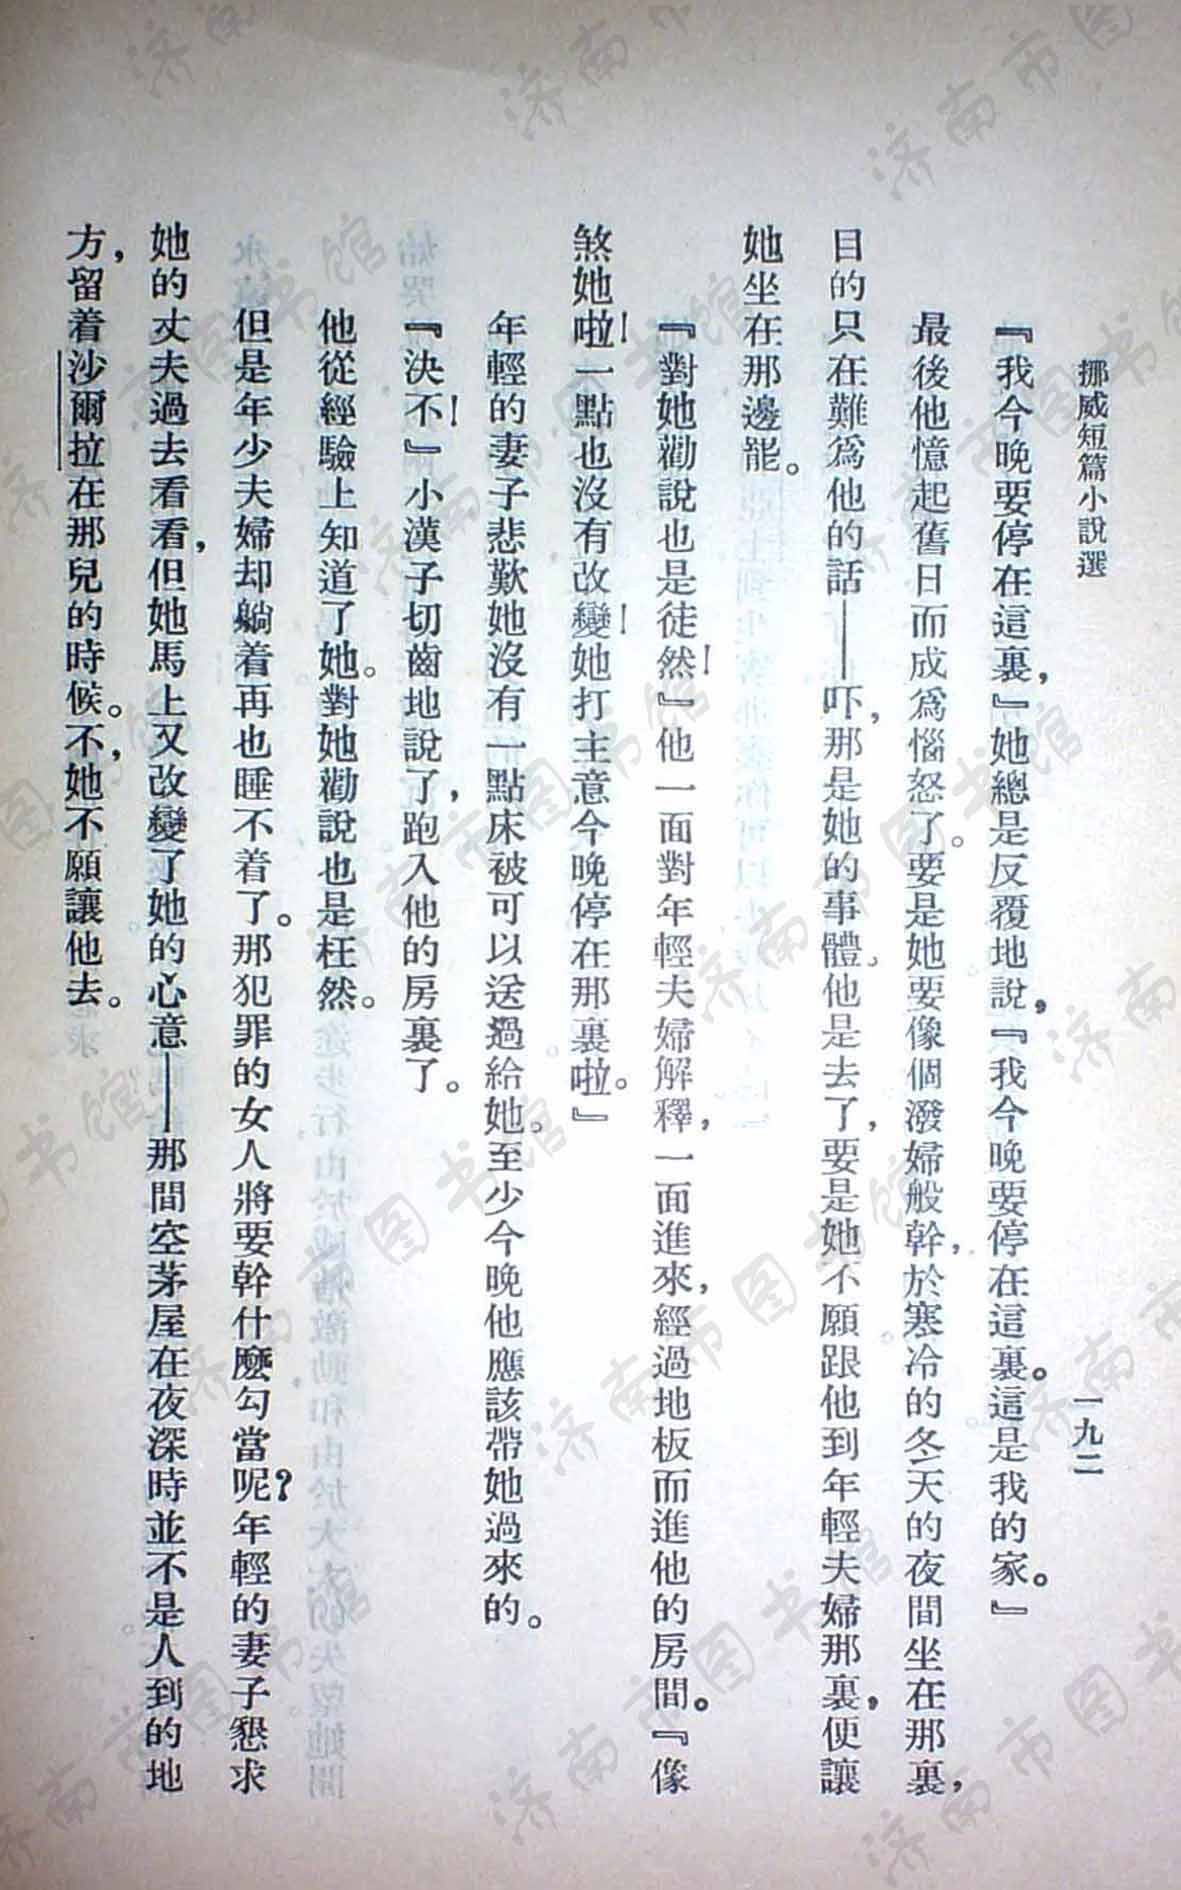 挪威短篇小說選
一九二
『我今晚要停在這裏，』她總是反覆地說，『我今晚要停在這裏。這是我的家。』
最後他憶起舊日而成爲惱怒了。要是她要像個潑婦般幹，於寒冷的冬天的夜間坐在那裏，
目的只在難爲他的話——吓，那是她的事體。他是去了，要是她不願跟他到年輕夫婦那裏，便讓
她坐在那邊罷。
『對她勸說也是徒然！』他一面對年輕夫婦解釋，一面進來，經過地板而進他的房間。『像
煞她啦！一點也沒有改變！她打主意今晚停在那裏啦。』
年輕的妻子悲歎她沒有一點床被可以送過給她。至少今晚他應該帶她過來的。
『決不！』小漢子切齒地說了，跑入他的房裏了。
他從經驗上知道了她。對她勸說也是枉然。
但是年少夫婦却躺着再也睡不着了。那犯罪的女人將要幹什麼勾當呢？年輕的妻子懇求
她的丈夫過去看看，但她馬上又改變了她的心意——那間空茅屋在夜深時並不是人到的地
方，留着沙爾拉在那兒的時候。不，她不願讓他去。
济南市图书馆